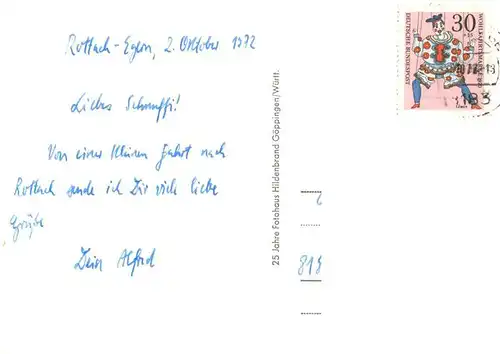 Rottach-Egern, 2. Oktober 1972
Liebes Schnuffi!
Von einer kleinen Fahrt nach
Rottach sende ich Dir viele liebe
Grüße
Dein Alfred
25 Jahre Fotohaus Hildenbrand Göppingen/Württ.
30
+15
DEUTSCHE BUNDESPOST
WOHLFAHRTSMARKE 1970
183
818